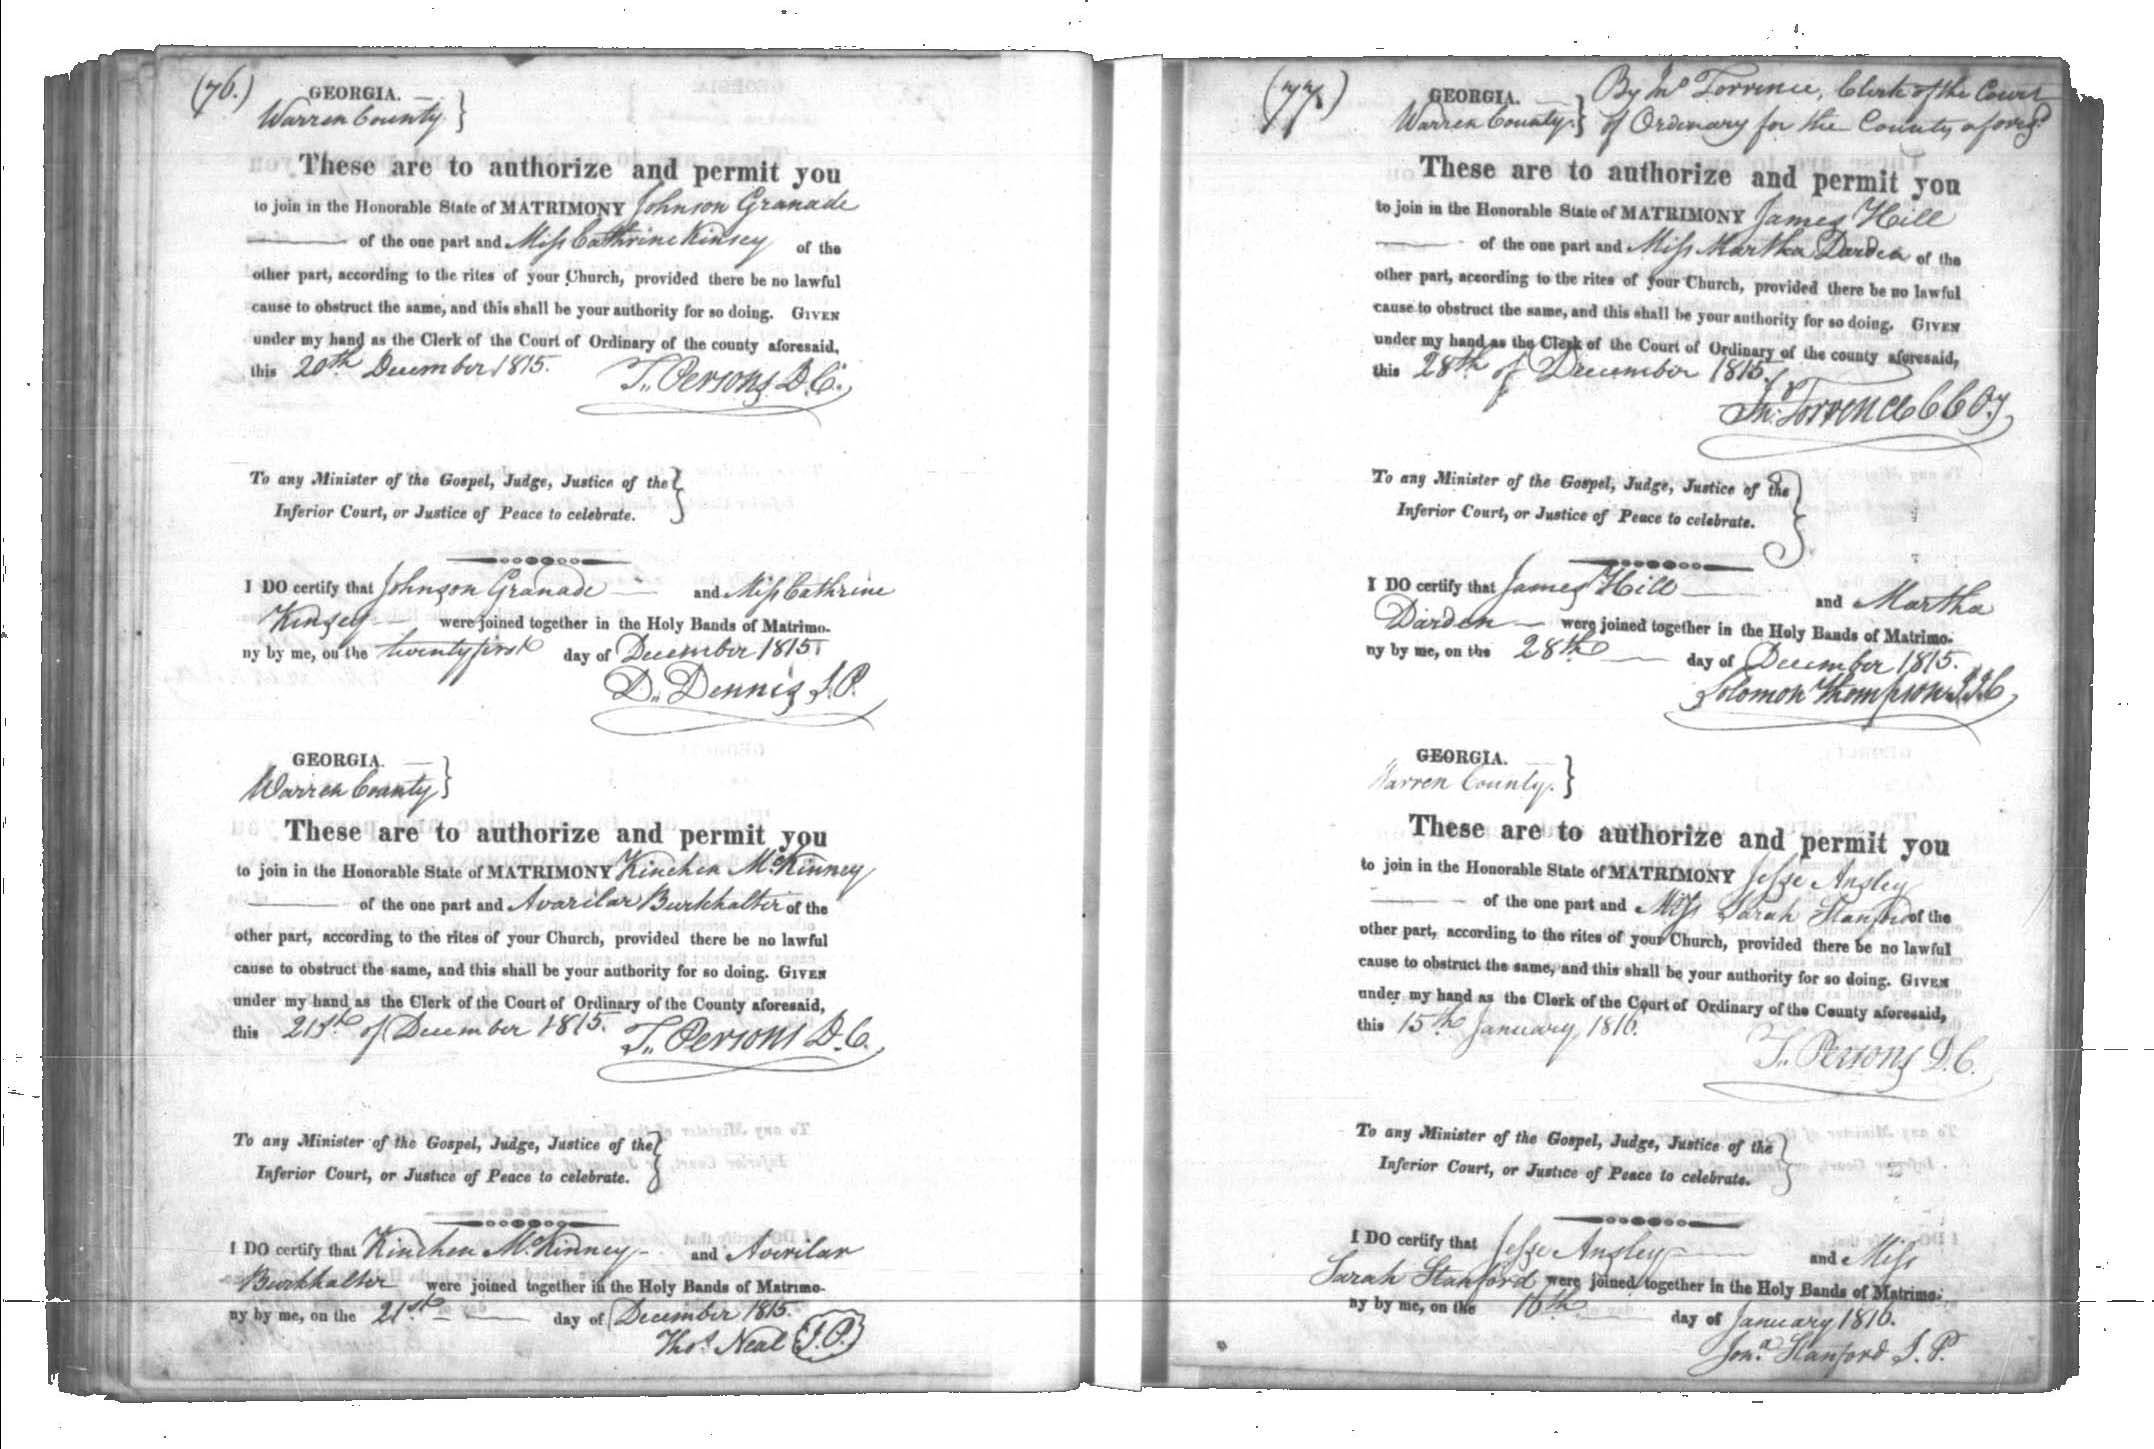 (76.)
GEORGIA. —
Warren County }
These are to authorize and permit you
to join in the Honorable State of MATRIMONY Johnson Granade
—— of the one part and Miss Cathrine Kinsey of the
other part, according to the rites of your Church, provided there be no lawful
cause to obstruct the same, and this shall be your authority for so doing. GIVEN
under my hand as the Clerk of the Court of Ordinary of the county aforesaid,
this 20th December 1815. T. Persons D.C.
To any Minister of the Gospel, Judge, Justice of the }
Inferior Court, or Justice of Peace to celebrate.
I DO certify that Johnson Granade — and Miss Cathrine
Kinsey — were joined together in the Holy Bands of Matrimo-
ny by me, on the twenty first day of December 1815
D. Dennis J.P.
GEORGIA. —
Warren County }
These are to authorize and permit you
to join in the Honorable State of MATRIMONY Kinchen McKinney
—— of the one part and Avarilar Burkhalter of the
other part, according to the rites of your Church, provided there be no lawful
cause to obstruct the same, and this shall be your authority for so doing. GIVEN
under my hand as the Clerk of the Court of Ordinary of the County aforesaid,
this 21st of December 1815. T. Persons D.C.
To any Minister of the Gospel, Judge, Justice of the }
Inferior Court, or Justice of Peace to celebrate.
I DO certify that Kinchen McKinney — and Averilar
Burkhalter were joined together in the Holy Bands of Matrimo-
ny by me, on the 21st — day of December 1815.
Thos. Neal J.P.
(77.)
GEORGIA. — } By Jno Torrence, Clerk of the Court
Warren County. } of Ordinary for the County aforesd.
These are to authorize and permit you
to join in the Honorable State of MATRIMONY James Hill
—— of the one part and Miss Martha Darden of the
other part, according to the rites of your Church, provided there be no lawful
cause to obstruct the same, and this shall be your authority for so doing. GIVEN
under my hand as the Clerk of the Court of Ordinary of the county aforesaid,
this 28th of December 1815.
Jno. Torrence CCOy
To any Minister of the Gospel, Judge, Justice of the }
Inferior Court, or Justice of Peace to celebrate.
I DO certify that James Hill — and Martha
Darden — were joined together in the Holy Bands of Matrimo-
ny by me, on the 28th — day of December 1815.
Solomon Thompson J.I.C
GEORGIA. —
Warren County. }
These are to authorize and permit you
to join in the Honorable State of MATRIMONY Jesse Ansley
—— of the one part and Miss Sarah Stanford of the
other part, according to the rites of your Church, provided there be no lawful
cause to obstruct the same, and this shall be your authority for so doing. GIVEN
under my hand as the Clerk of the Court of Ordinary of the County aforesaid,
this 15th January 1816.
T. Persons D.C.
To any Minister of the Gospel, Judge, Justice of the }
Inferior Court, or Justice of Peace to celebrate.
I DO certify that Jesse Ansley — and Miss
Sarah Stanford were joined together in the Holy Bands of Matrimo-
ny by me, on the 16th day of January 1816.
Jona. Stanford J.P.